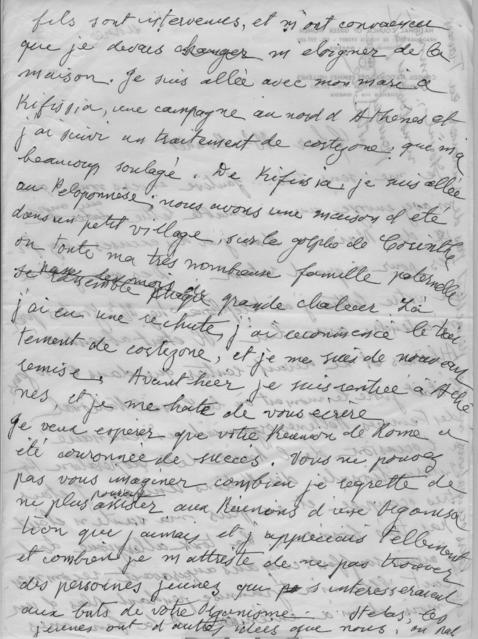 fils sont intervenus, et m'ont convaincu
que je devais changer m'eloigner de la
maison. Je suis allée avec mon mari a
Kifissia, une campagne au nord d'Athenes et
j'ai suivi un traitement de cortezone, qui m'a
beaucoup soulagé. De Kifissia, je suis allée
au Peloponnese, nous avons une maison d'été
dans un petit village, sur le golphe de Corinthe
ou toute ma très nombreuse famille paternelle
se rassemble grande chaleur Là
j'ai eu une rechute, j'ai recommencé le trai
tement de cortezone, et je me suis de nouveau
remise. Avant hier je suis rentrée à Athe
nes et je me hate de vous ecrire
Je veux esperer que votre Reunion de Rome a
été couronnée de succes. Vous ne pouvez
pas vous imaginer combien je regrette de
ne plus pouvoir assister aux Reunions d'une Organisa
tion que j'aimais et j'appreciais tellement
et combien je m'attriste de ne pas trouver
des personnes jeunes qui s'interesseraient
aux buts de votre Organisme. Helas, les
jeunes ont d'autres idees que nous,